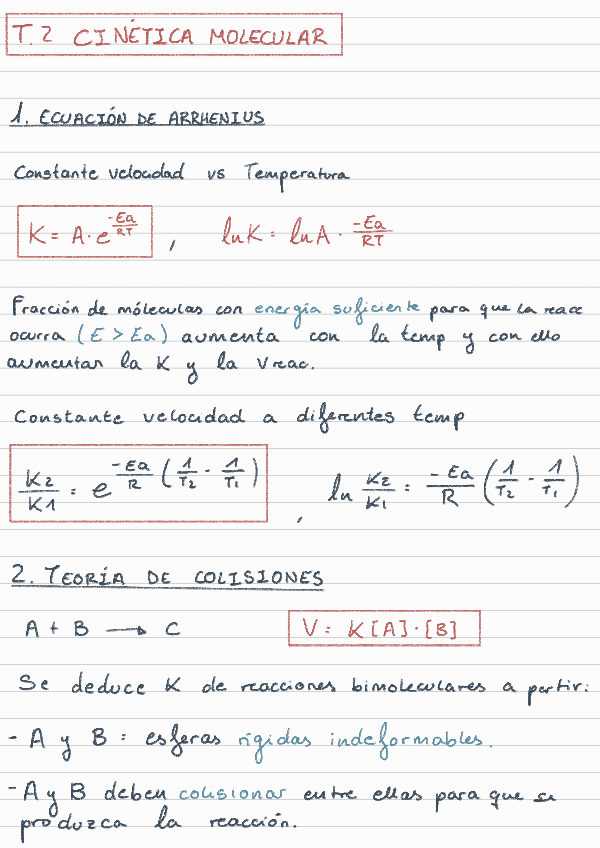 T.2 CINÉTICA MOLECULAR
1. ECUACIÓN DE ARRHENIUS
Constante velocidad vs Temperatura
K = A · e^(-Ea/RT) , ln K = ln A · -Ea/RT
Fracción de móleculas con energía suficiente para que la reacc
ocurra (E > Ea) aumenta con la temp y con ello
aumentan la K y la Vreac.
Constante velocidad a diferentes temp
K2/K1 = e^(-Ea/R (1/T2 - 1/T1)) , ln K2/K1 = -Ea/R (1/T2 - 1/T1)
2. TEORÍA DE COLISIONES
A + B → C V = K[A]·[B]
Se deduce K de reacciones bimoleculares a partir:
- A y B = esferas rígidas indeformables.
- A y B deben colisionar entre ellas para que se
produzca la reacción.